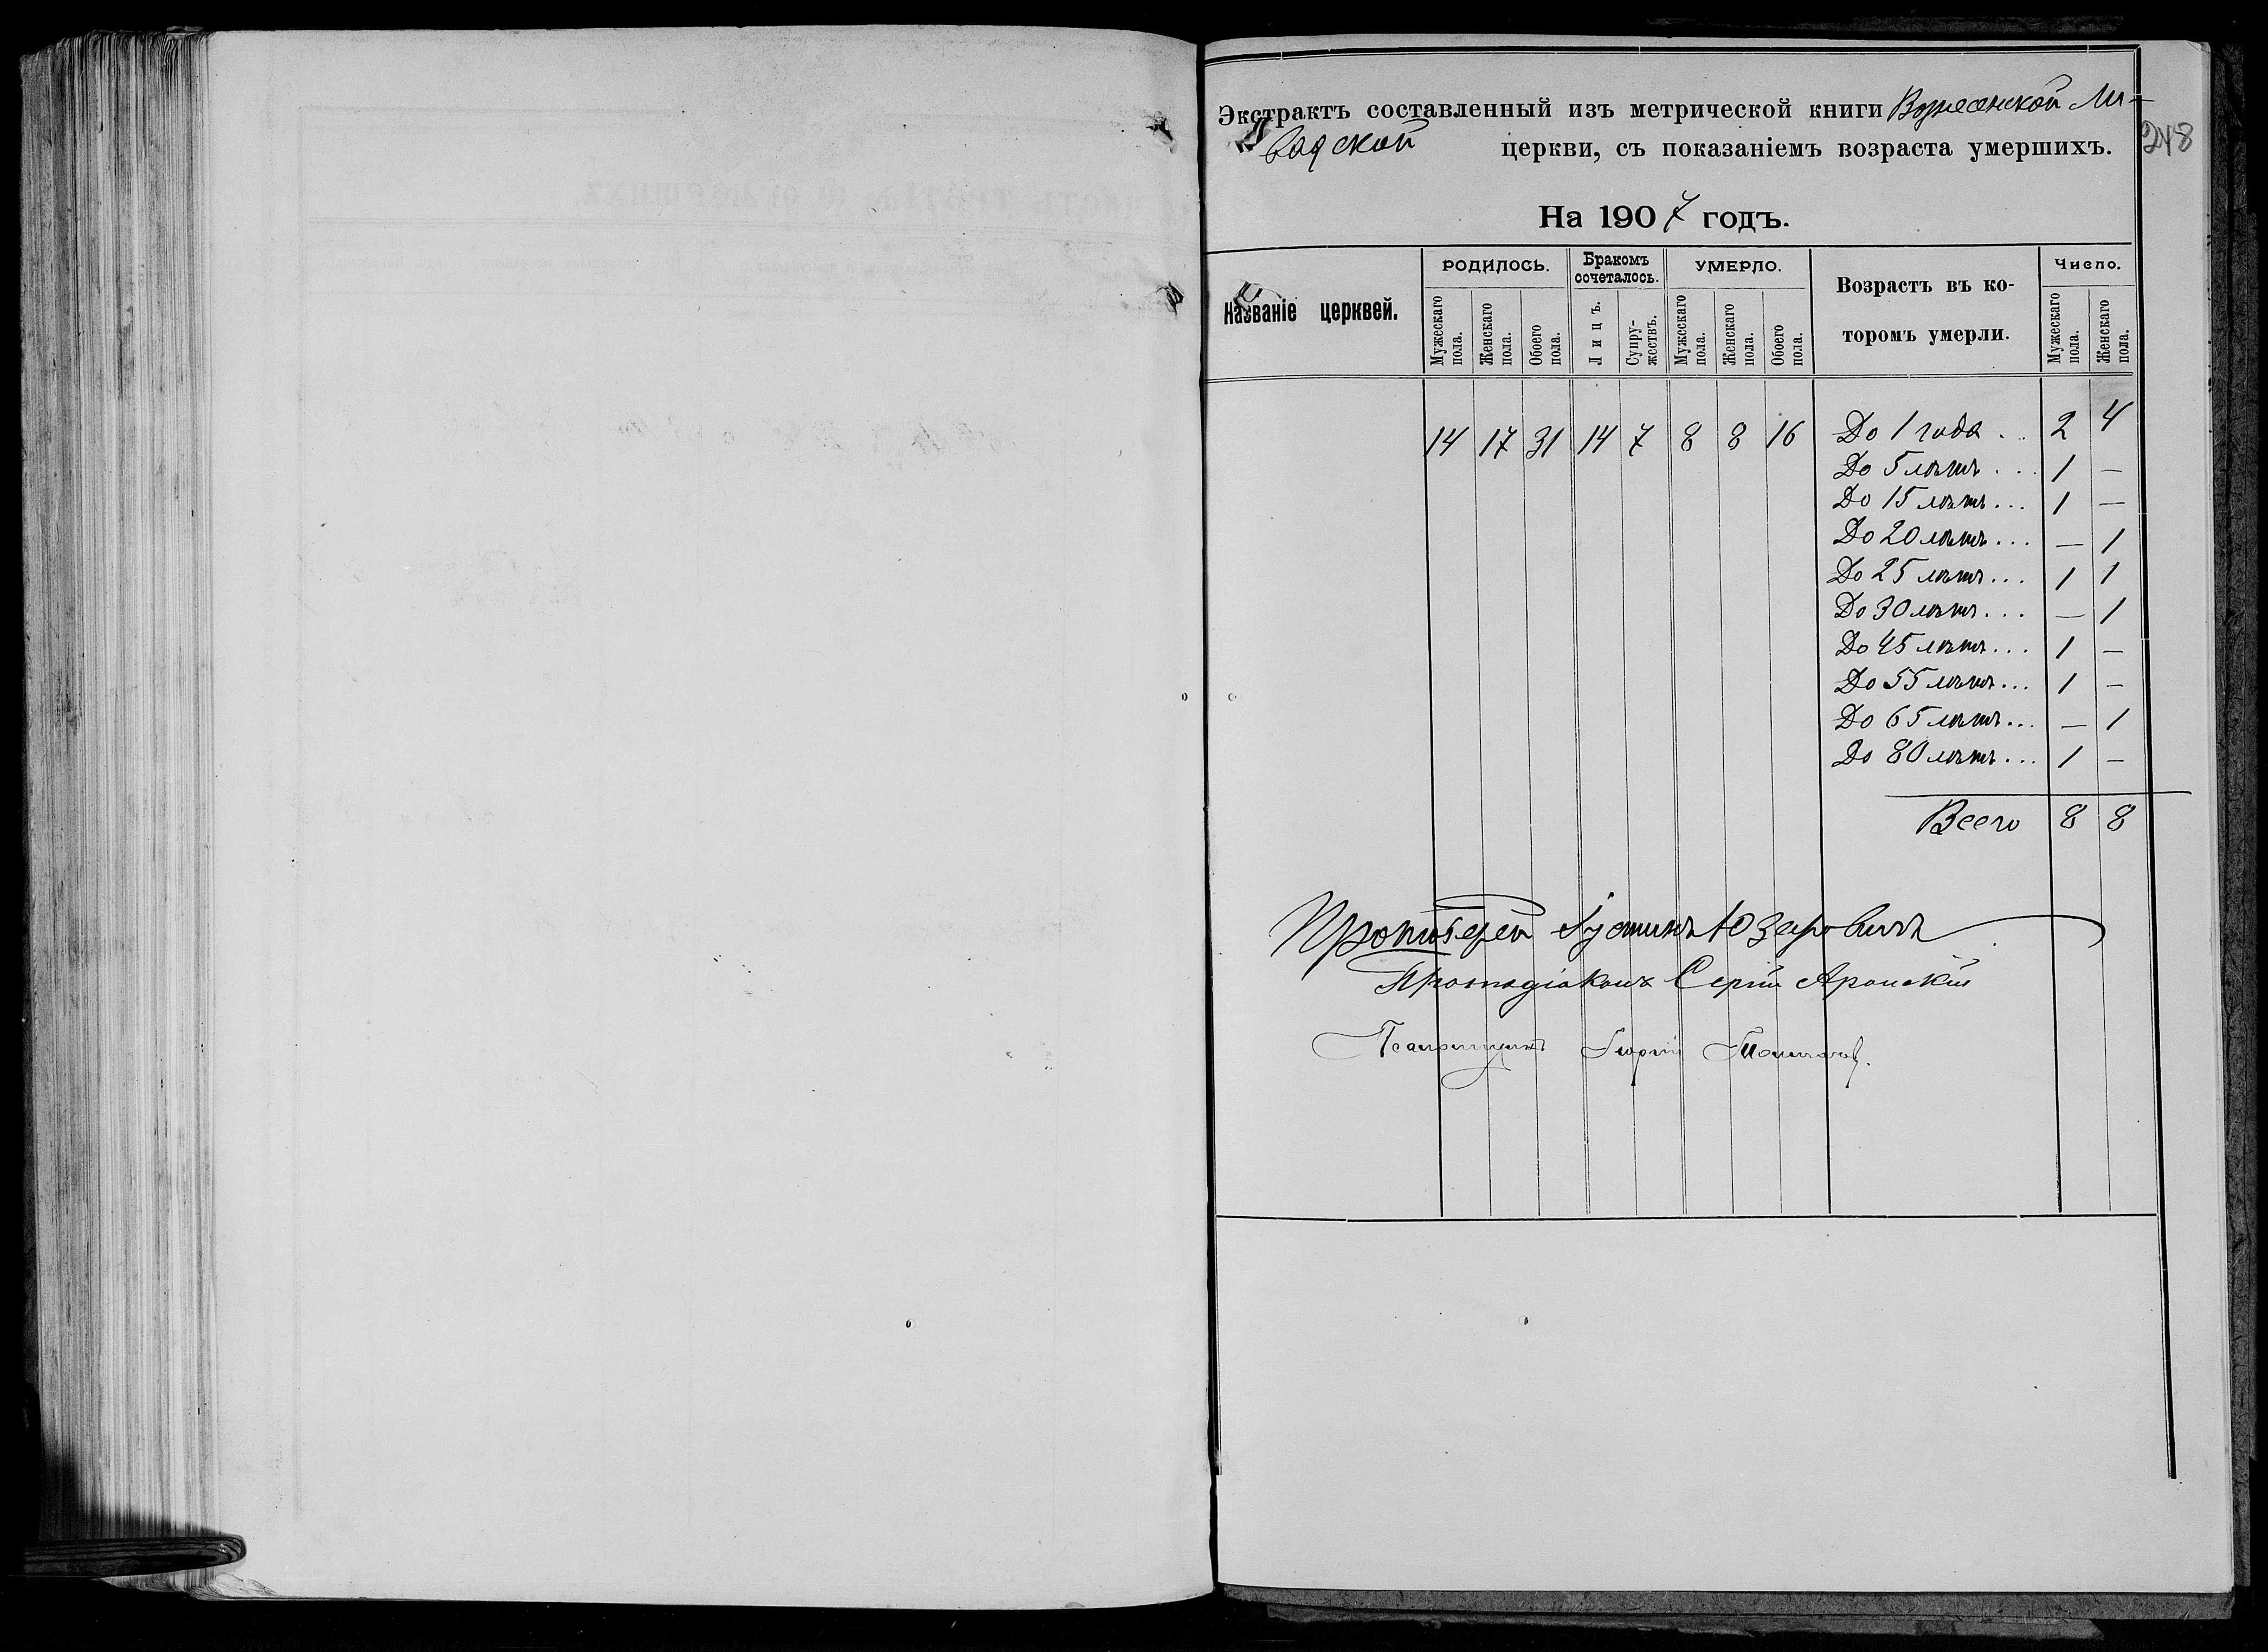 Экстрактъ составленный изъ метрической книги Вознесенской Ли-
вадской церкви, съ показаніемъ возраста умершихъ.
248
На 1907 годъ.
Названіе церквей.
РОДИЛОСЬ.
Бракомъ сочеталось.
УМЕРЛО.
Возрастъ въ ко-
торомъ умерли.
Число.
Мужескаго пола.
Женскаго пола.
Обоего пола.
Лицъ.
Супру-
жествъ.
Мужескаго пола.
Женскаго пола.
Обоего пола.
Мужескаго пола.
Женскаго пола.
14 17 31 14 7 8 8 16 До 1 года .. 2 4
До 5 лѣтъ ... 1 —
До 15 лѣтъ ... 1 —
До 20 лѣтъ ... — 1
До 25 лѣтъ ... 1 1
До 30 лѣтъ ... — 1
До 45 лѣтъ ... 1 —
До 55 лѣтъ ... 1 —
До 65 лѣтъ ... — 1
До 80 лѣтъ ... 1 —
Всего 8 8
Протоіерей Іустинъ Юзефовичъ
Протодіаконъ Сергій
Псаломщикъ Георгій